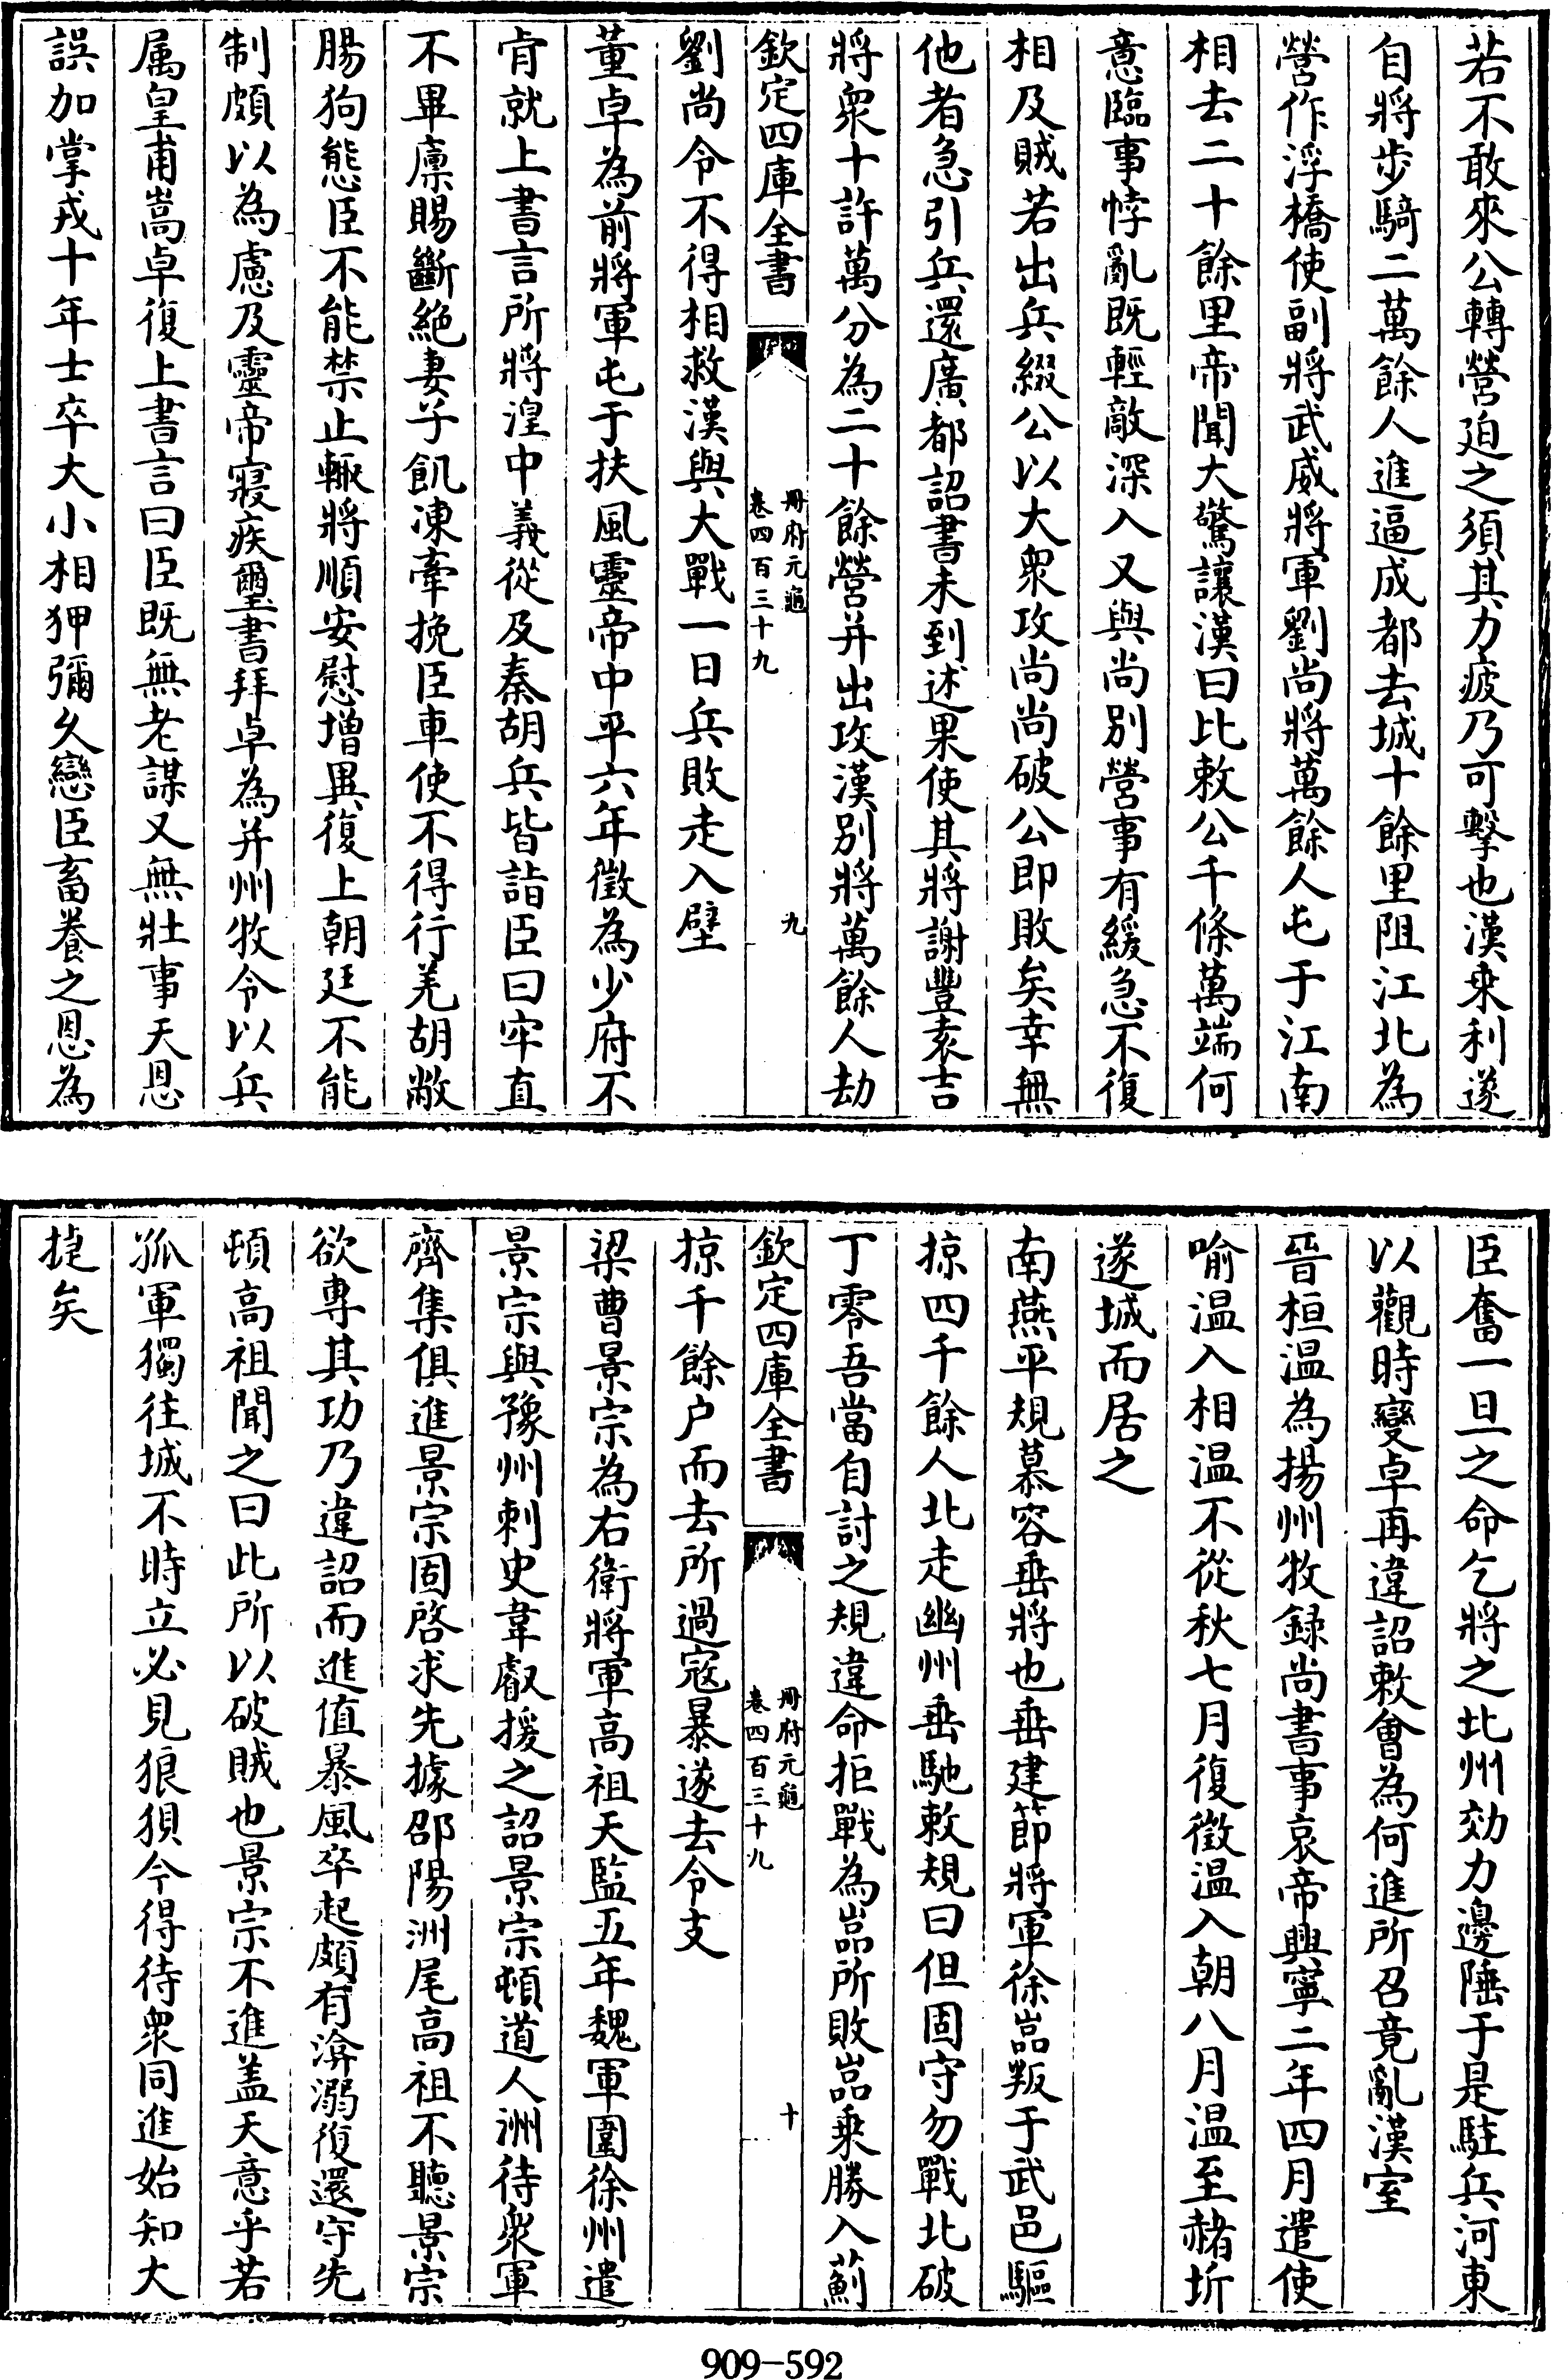 若不敢來公轉營迫之須其力疲乃可擊也漢乗利遂
自將步騎二萬餘人進逼成都去城十餘里阻江北為
營作浮橋使副將武威將軍劉尚將萬餘人屯于江南
相去二十餘里帝聞大驚讓漢曰比敕公千條萬端何
意臨事悖亂既輕敵深入又與尚別營事有緩急不復
相及賊若出兵綴公以大衆攻尚尚破公即敗矣幸無
他者急引兵還廣都詔書未到述果使其將謝豐袁吉
將衆十許萬分為二十餘營并出攻漢別將萬餘人劫
欽定四庫全書
冊府元龜
卷四百三十九
九
劉尚令不得相救漢與大戰一日兵敗走入壁
董卓為前將軍屯于扶風靈帝中平六年徵為少府不
肯就上書言所將湟中義從及秦胡兵皆詣臣曰牢直
不畢廩賜斷絶妻子飢凍牽挽臣車使不得行羌胡敝
腸狗態臣不能禁止輒將順安慰增異復上朝廷不能
制頗以為慮及靈帝寢疾璽書拜卓為并州牧令以兵
属皇甫嵩卓復上書言曰臣既無老謀又無壯事天恩
誤加掌戎十年士卒大小相狎彌久戀臣畜養之恩為
臣奮一旦之命乞將之北州効力邊陲于是駐兵河東
以觀時變卓再違詔敕會為何進所召竟亂漢室
晉桓温為揚州牧録尚書事哀帝興寧二年四月遣使
喻温入相温不從秋七月復徵温入朝八月温至赭圻
遂城而居之
南燕平規慕容垂將也垂建節將軍徐嵓叛于武邑驅
掠四千餘人北走幽州垂馳敕規曰但固守勿戰北破
丁零吾當自討之規違命拒戰為嵓所敗嵓乗勝入薊
欽定四庫全書
冊府元龜
卷四百三十九
十
掠千餘户而去所過寇暴遂去令支
梁曹景宗為右衛將軍高祖天監五年魏軍圍徐州遣
景宗與豫州刺史韋叡援之詔景宗頓道人洲待衆軍
齊集俱進景宗固啓求先據邵陽洲尾高祖不聽景宗
欲專其功乃違詔而進值暴風卒起頗有渰溺復還守先
頓高祖聞之曰此所以破賊也景宗不進盖天意乎若
孤軍獨往城不時立必見狼狽今得待衆同進始知大
捷矣
909-592